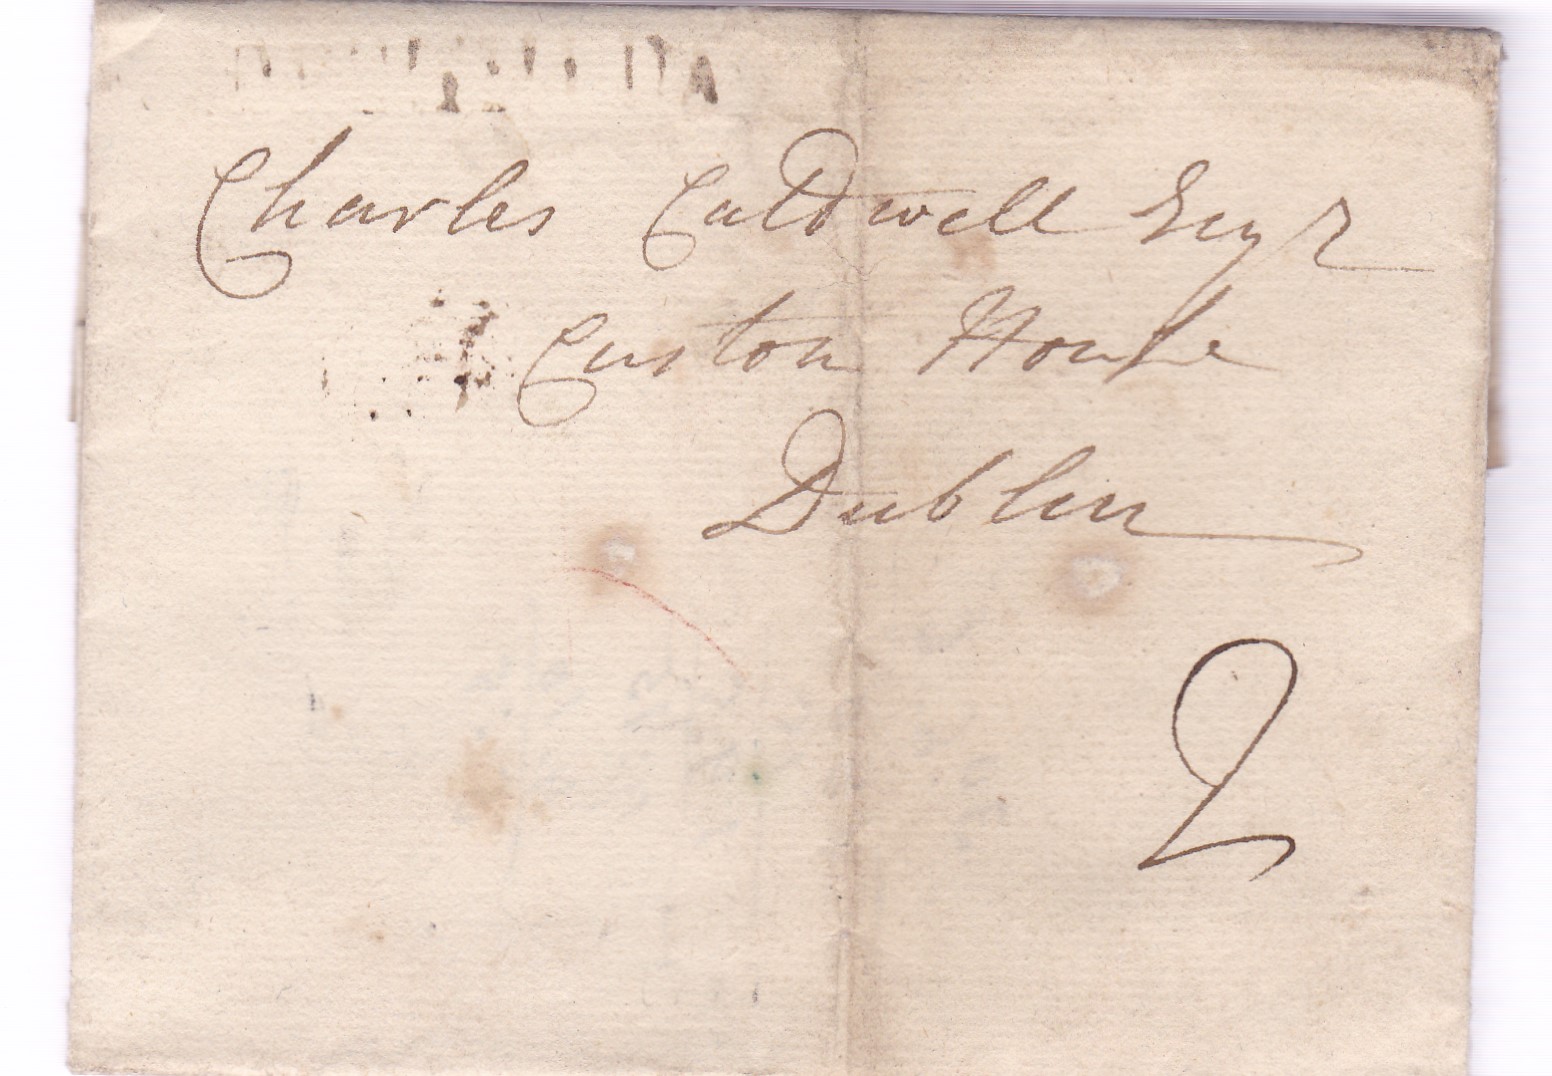 Charles Caldwell Esqr
Custom Houſe
Dublin
2